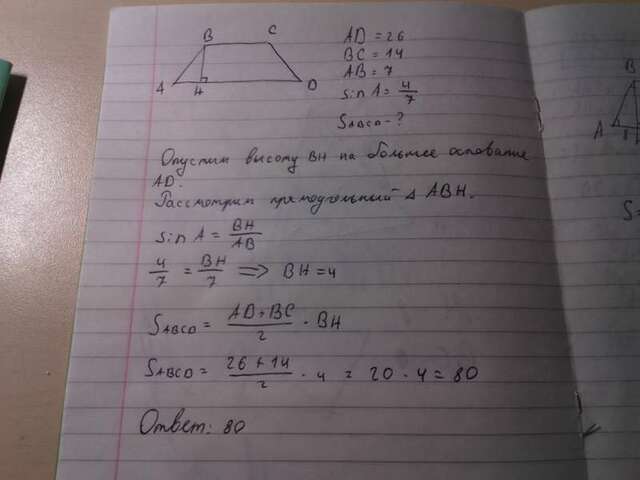 B C
A H D
AD = 26
BC = 14
AB = 7
sin A = 4/7
S ABCD - ?
Опустим высоту BH на большее основание
AD.
Рассмотрим прямоугольный Δ ABH.
sin A = BH/AB
4/7 = BH/7 => BH = 4
S ABCD = (AD + BC)/2 · BH
S ABCD = (26 + 14)/2 · 4 = 20 · 4 = 80
Ответ: 80
B
A
S=